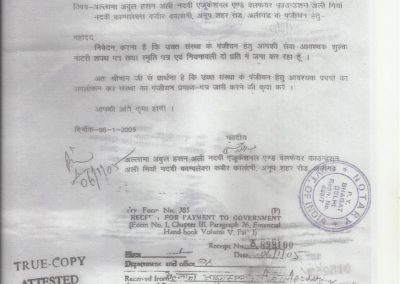 विषय-अल्लामा अबुल हसन अली नदवी एजूकेशनल एण्ड वेलफेयर फाउन्डेशन अली मियाँ
नदवी काम्पलेक्स कबीर कालोनी, अनूप शहर रोड, अलीगढ के पंजीयन हेतु-
महोदय,
निवेदन करना है कि उक्त संस्था के पंजीयन हेतु आपकी सेवा आवश्यक शुल्क
नोटरी शपथ पत्र तथा स्मृति पत्र एवं नियमावली दो प्रति में जमा कर रहा हूँ ।
अतः श्रीमान जी से प्रार्थना है कि उक्त संस्था के पंजीयन हेतु आवश्यक प्रपत्रों का
अवलोकन कर संस्था का पंजीयन प्रमाण-पत्र जारी करने की कृपा करें ।
आपकी अति कृपा होगी ।
दिनांक-06-1-2005
भवदीय
06/1/05
अल्लामा अबुल हसन अली नदवी एजूकेशनल एण्ड वेलफेयर फाउन्डेशन
अली मियाँ नदवी काम्पलेक्स कबीर कालोनी, अनूप शहर रोड, अलीगढ
NOTARY
Form No. 385 (P)
RECEIPT FOR PAYMENT TO GOVERNMENT
(Form No. 1, Chapter III, Paragraph 26, Financial
Hand-book Volume V, Part I)
Receipt No.
Place
Date 06/1/05
Department and office
Received from
TRUE-COPY
ATTESTED